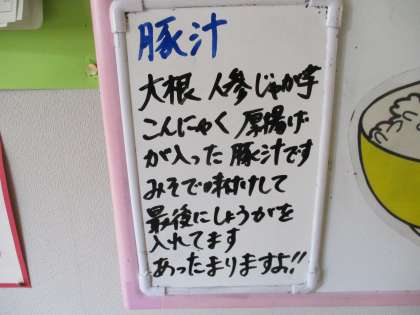 豚汁
大根 人参 じゃが芋
こんにゃく 厚揚げ
が入った豚汁です
みそで味付けして
最後にしょうがを
入れてます
あったまりますよ!!